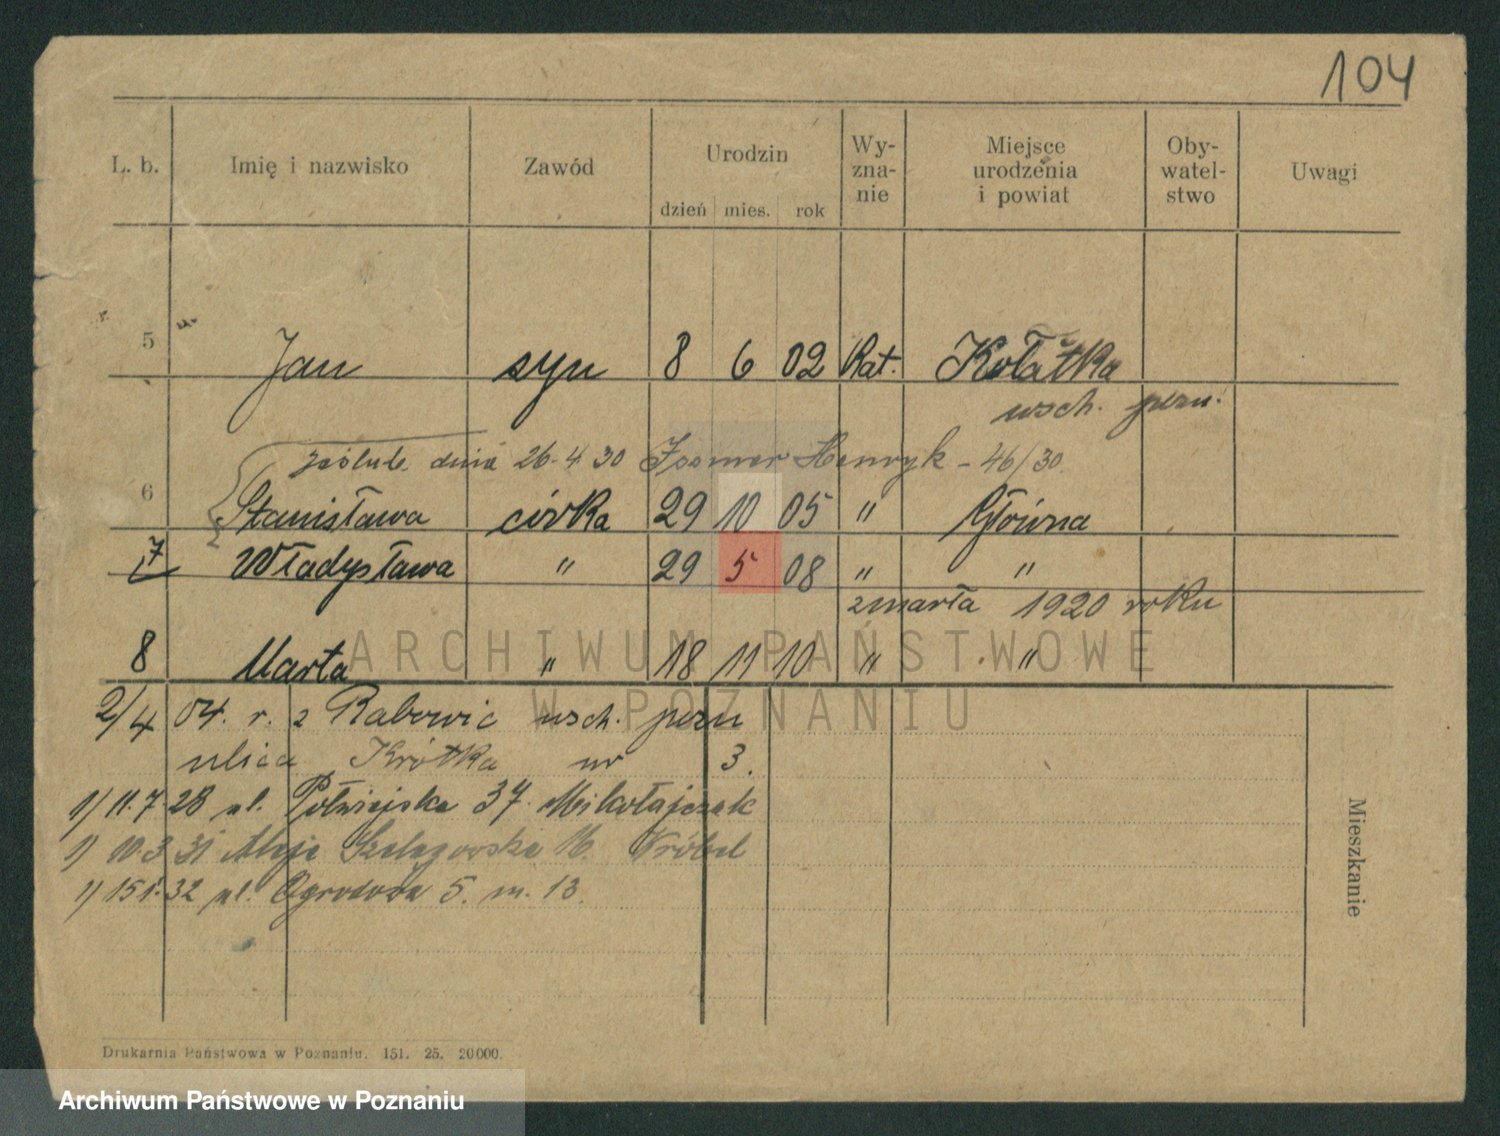 104
L. b. Imię i nazwisko Zawód Urodzin dzień mies. rok Wy-zna-nie Miejsce urodzenia i powiat Oby-watel-stwo Uwagi
5 Jan syn 8 6 02 Kat. Kołatka
wsch. pozn.
zaślub. dnia 26.4 30 Henryk - 46/30.
6 Stanisława córka 29 10 05 " Główna
7 Władysława " 29 5 08 " "
zmarła 1920 roku
8 Marta " 18 11 10 " "
ARCHIWUM PAŃSTWOWE
W POZNANIU
2/4 04. r. z Rabowic wsch. pozn
ulica Krótka nr 3.
1) 11.7.28 ul. Półwiejska 37. Mikołajczak
1) 10.3 31 Aleje Szelągowska 16. Wróbel
1) 15 1.32 ul. Ogrodowa 5. m. 13.
Mieszkanie
Drukarnia Państwowa w Poznaniu. 151. 25. 20000.
Archiwum Państwowe w Poznaniu